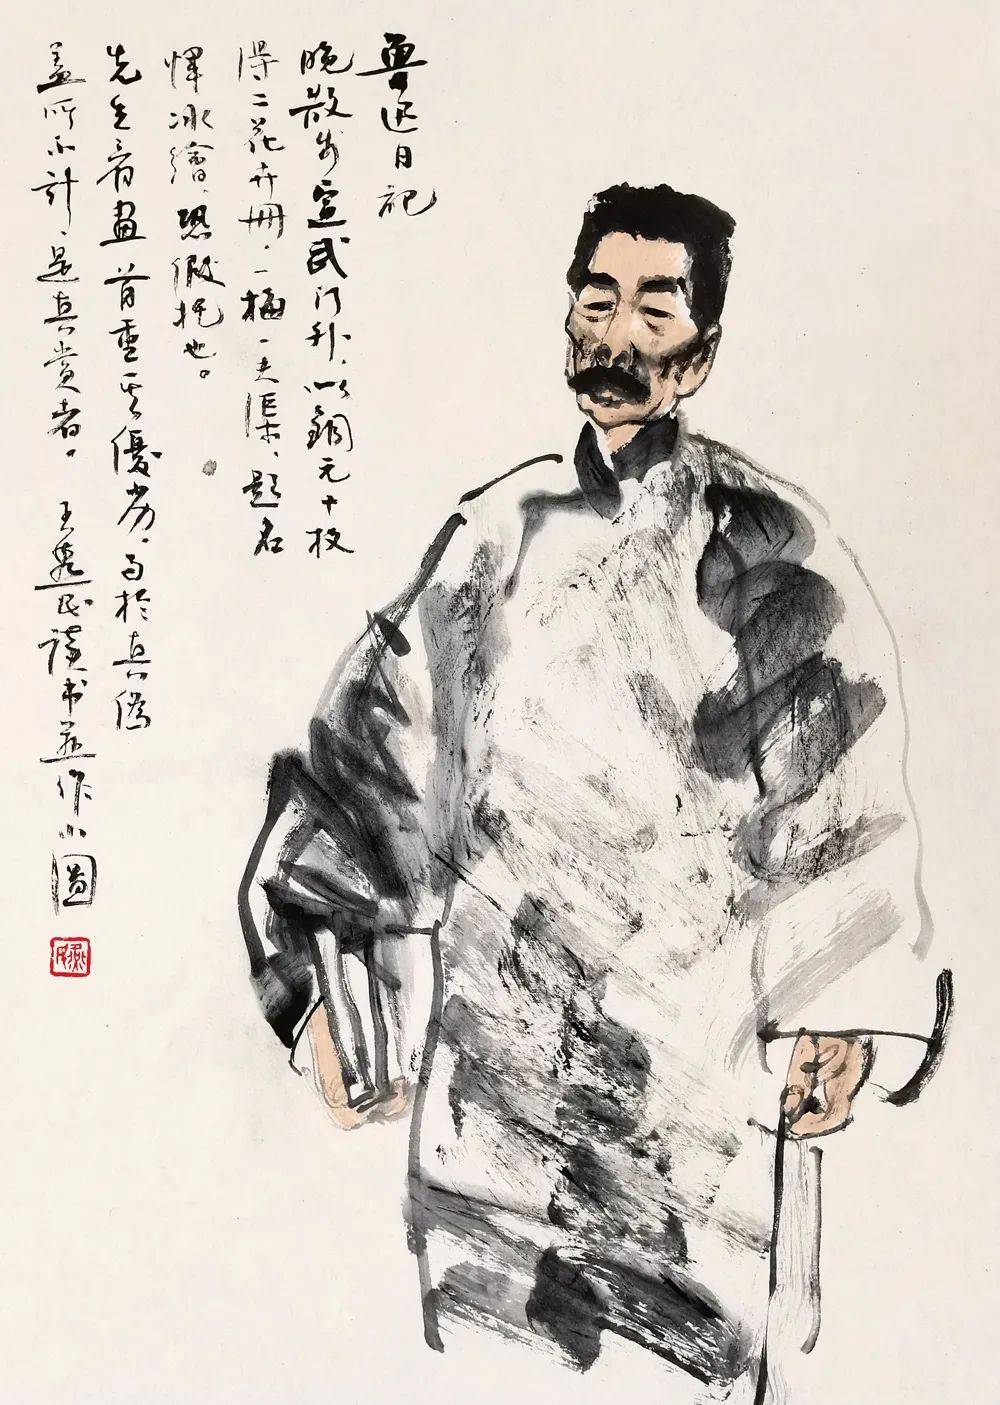 魯迅日记
晚散步宣武门外，以銅元十枚
得二花卉冊，一梅一夫渠，題名
惲冰繪，恐假托也。
先生看畫首重其優劣，而於真偽
盖所不計，是真赏者。王燕民讀书并作小圖
燕民